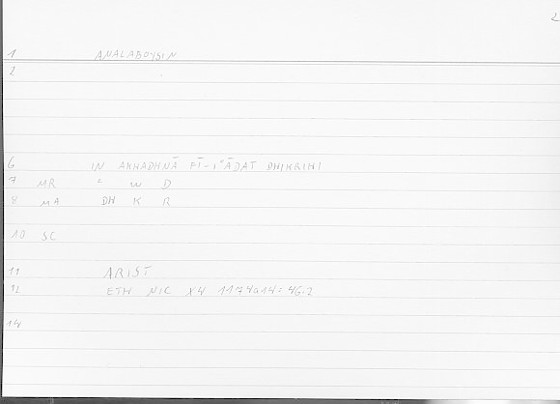 2
1 ANALABOYSIN
2
6 IN AKHADHNĀ FĪ-I'ĀDAT DHIKRIHI
7 MR ' W D
8 MA DH K R
10 SC
11 ARIST
12 ETH NIC X4 1174a14 = 46.2
14